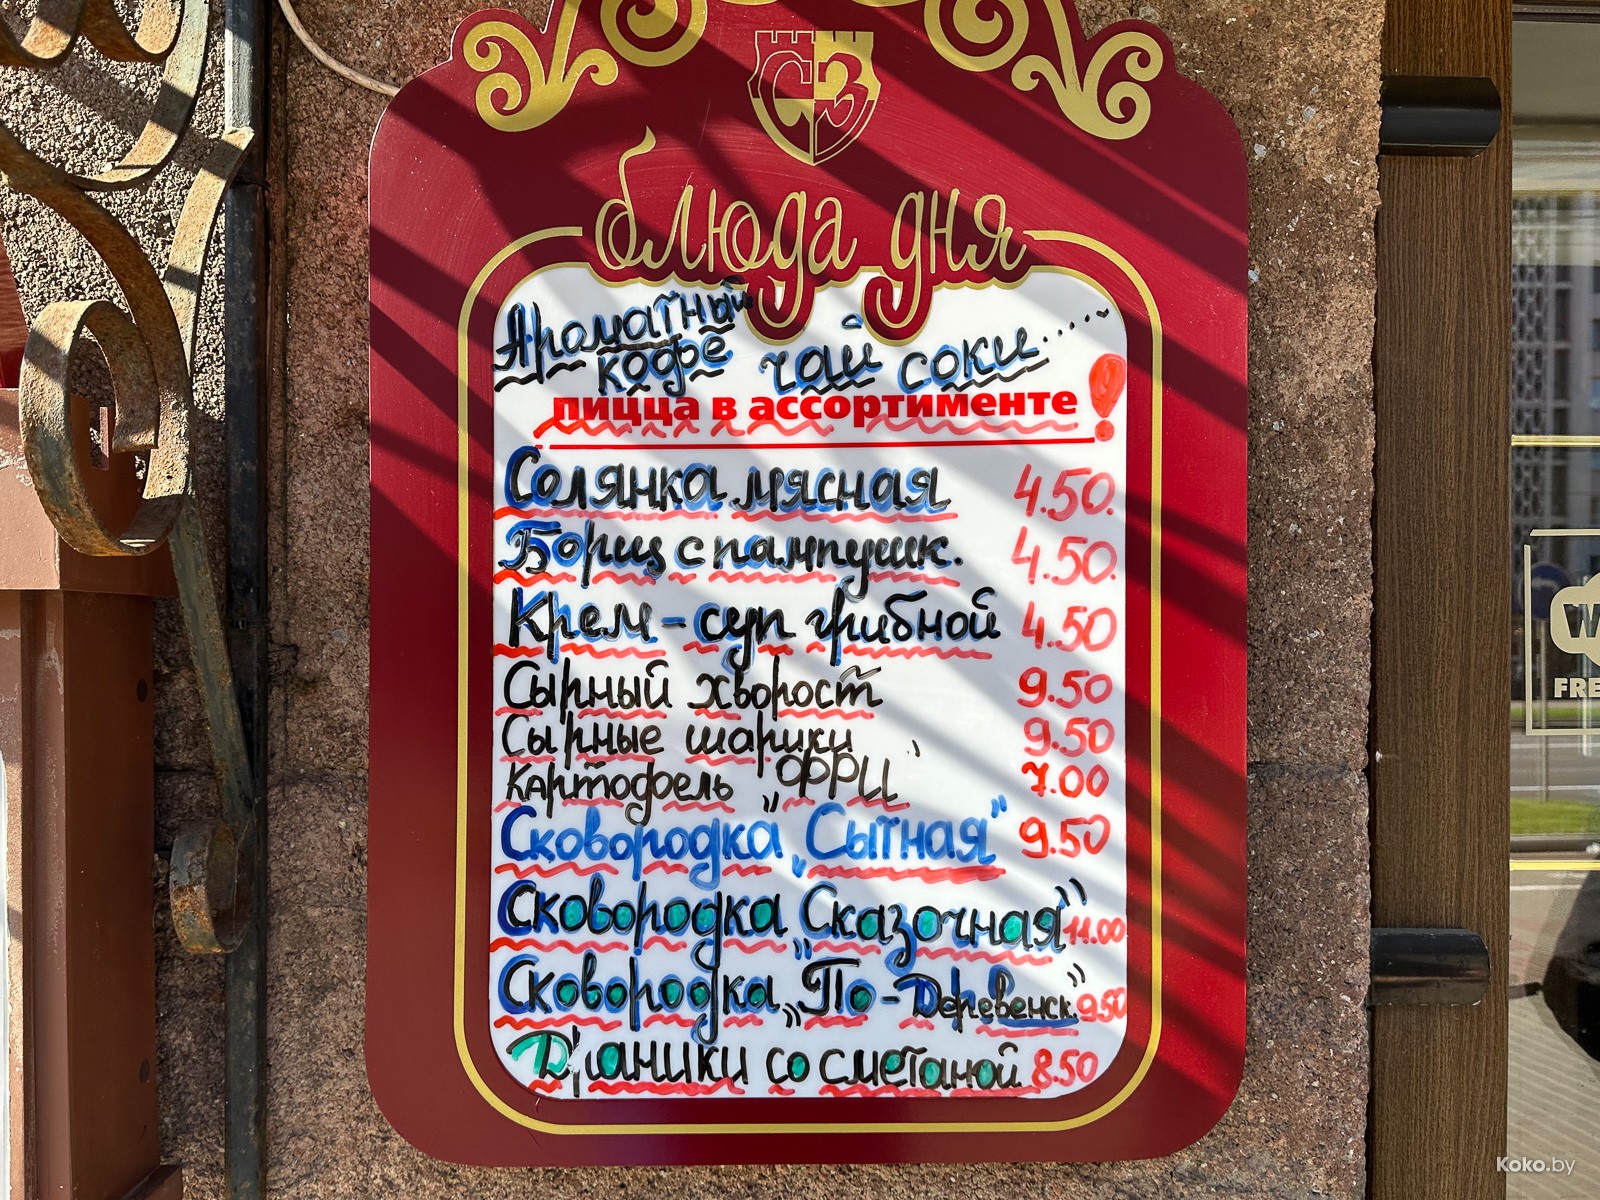 СЗ
блюда дня
Ароматный
кофе чай соки.....
пицца в ассортименте!
Солянка мясная 4.50.
Борщ с пампушк. 4.50.
Крем-суп грибной 4.50
Сырный хворост 9.50
Сырные шарики 9.50
Картофель „ФРИ" 7.00
Сковородка „Сытная" 9.50
Сковородка „Сказочная" 11.00
Сковородка „По-Деревенск." 9.50
Драники со сметаной 8.50
W
FRE
Koko.by